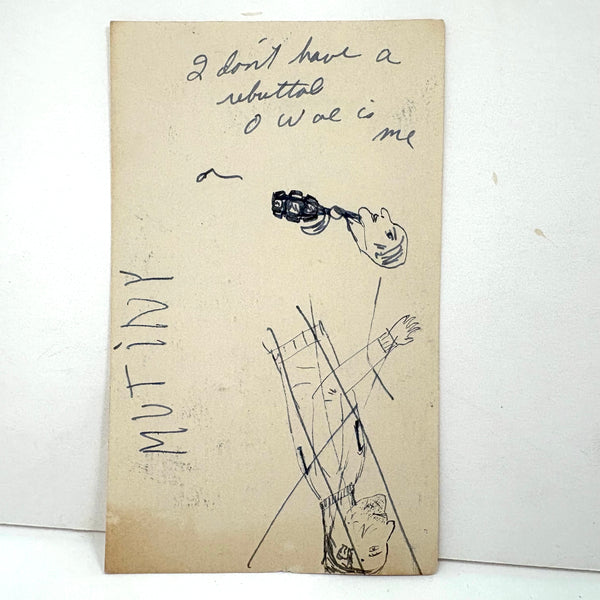 I don't have a
rebuttal
O Woe is
me
MUTiNY